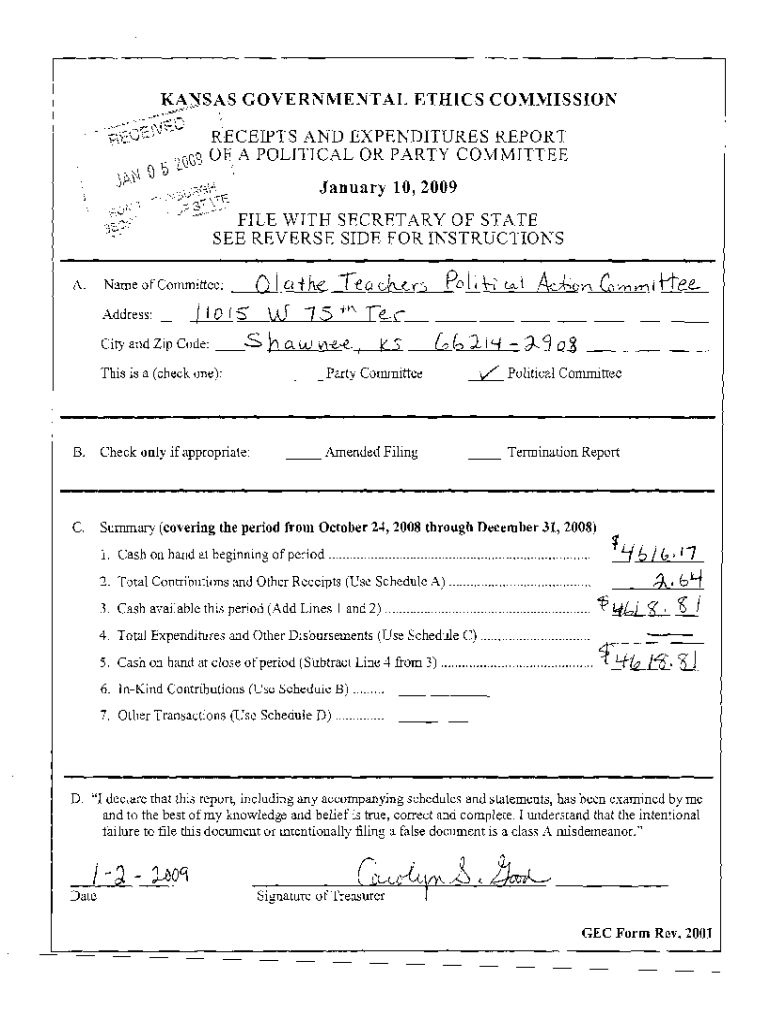 KANSAS GOVERNMENTAL ETHICS COMMISSION
RECEIVED
RECEIPTS AND EXPENDITURES REPORT
JAN 05 2009
OF A POLITICAL OR PARTY COMMITTEE
January 10, 2009
FILE WITH SECRETARY OF STATE
SEE REVERSE SIDE FOR INSTRUCTIONS
A. Name of Committee: Olathe Teachers Political Action Committee
Address: 11015 W 75th Ter
City and Zip Code: Shawnee, KS 66214-2908
This is a (check one): Party Committee ✓ Political Committee
B. Check only if appropriate: Amended Filing Termination Report
C. Summary (covering the period from October 24, 2008 through December 31, 2008)
1. Cash on hand at beginning of period $4616.17
2. Total Contributions and Other Receipts (Use Schedule A) 2.64
3. Cash available this period (Add Lines 1 and 2) $4618.81
4. Total Expenditures and Other Disbursements (Use Schedule C) —
5. Cash on hand at close of period (Subtract Line 4 from 3) $4618.81
6. In-Kind Contributions (Use Schedule B)
7. Other Transactions (Use Schedule D)
D. "I declare that this report, including any accompanying schedules and statements, has been examined by me
and to the best of my knowledge and belief is true, correct and complete. I understand that the intentional
failure to file this document or intentionally filing a false document is a class A misdemeanor."
1-2-2009 Carolyn S. Good
Date Signature of Treasurer
GEC Form Rev. 2001